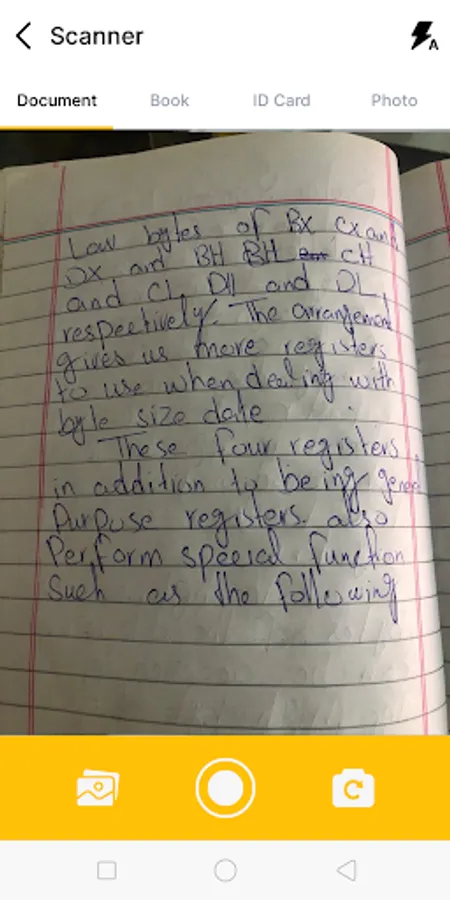 Scanner
A
Document Book ID Card Photo
Low bytes of BX CX and
DX are BH BH CH
and CL DH and DL,
respectively. The arrangement
gives us more registers
to use when dealing with
byte size date
These four registers,
in addition to being gener
Purpose registers also
Perform special function
Such as the following